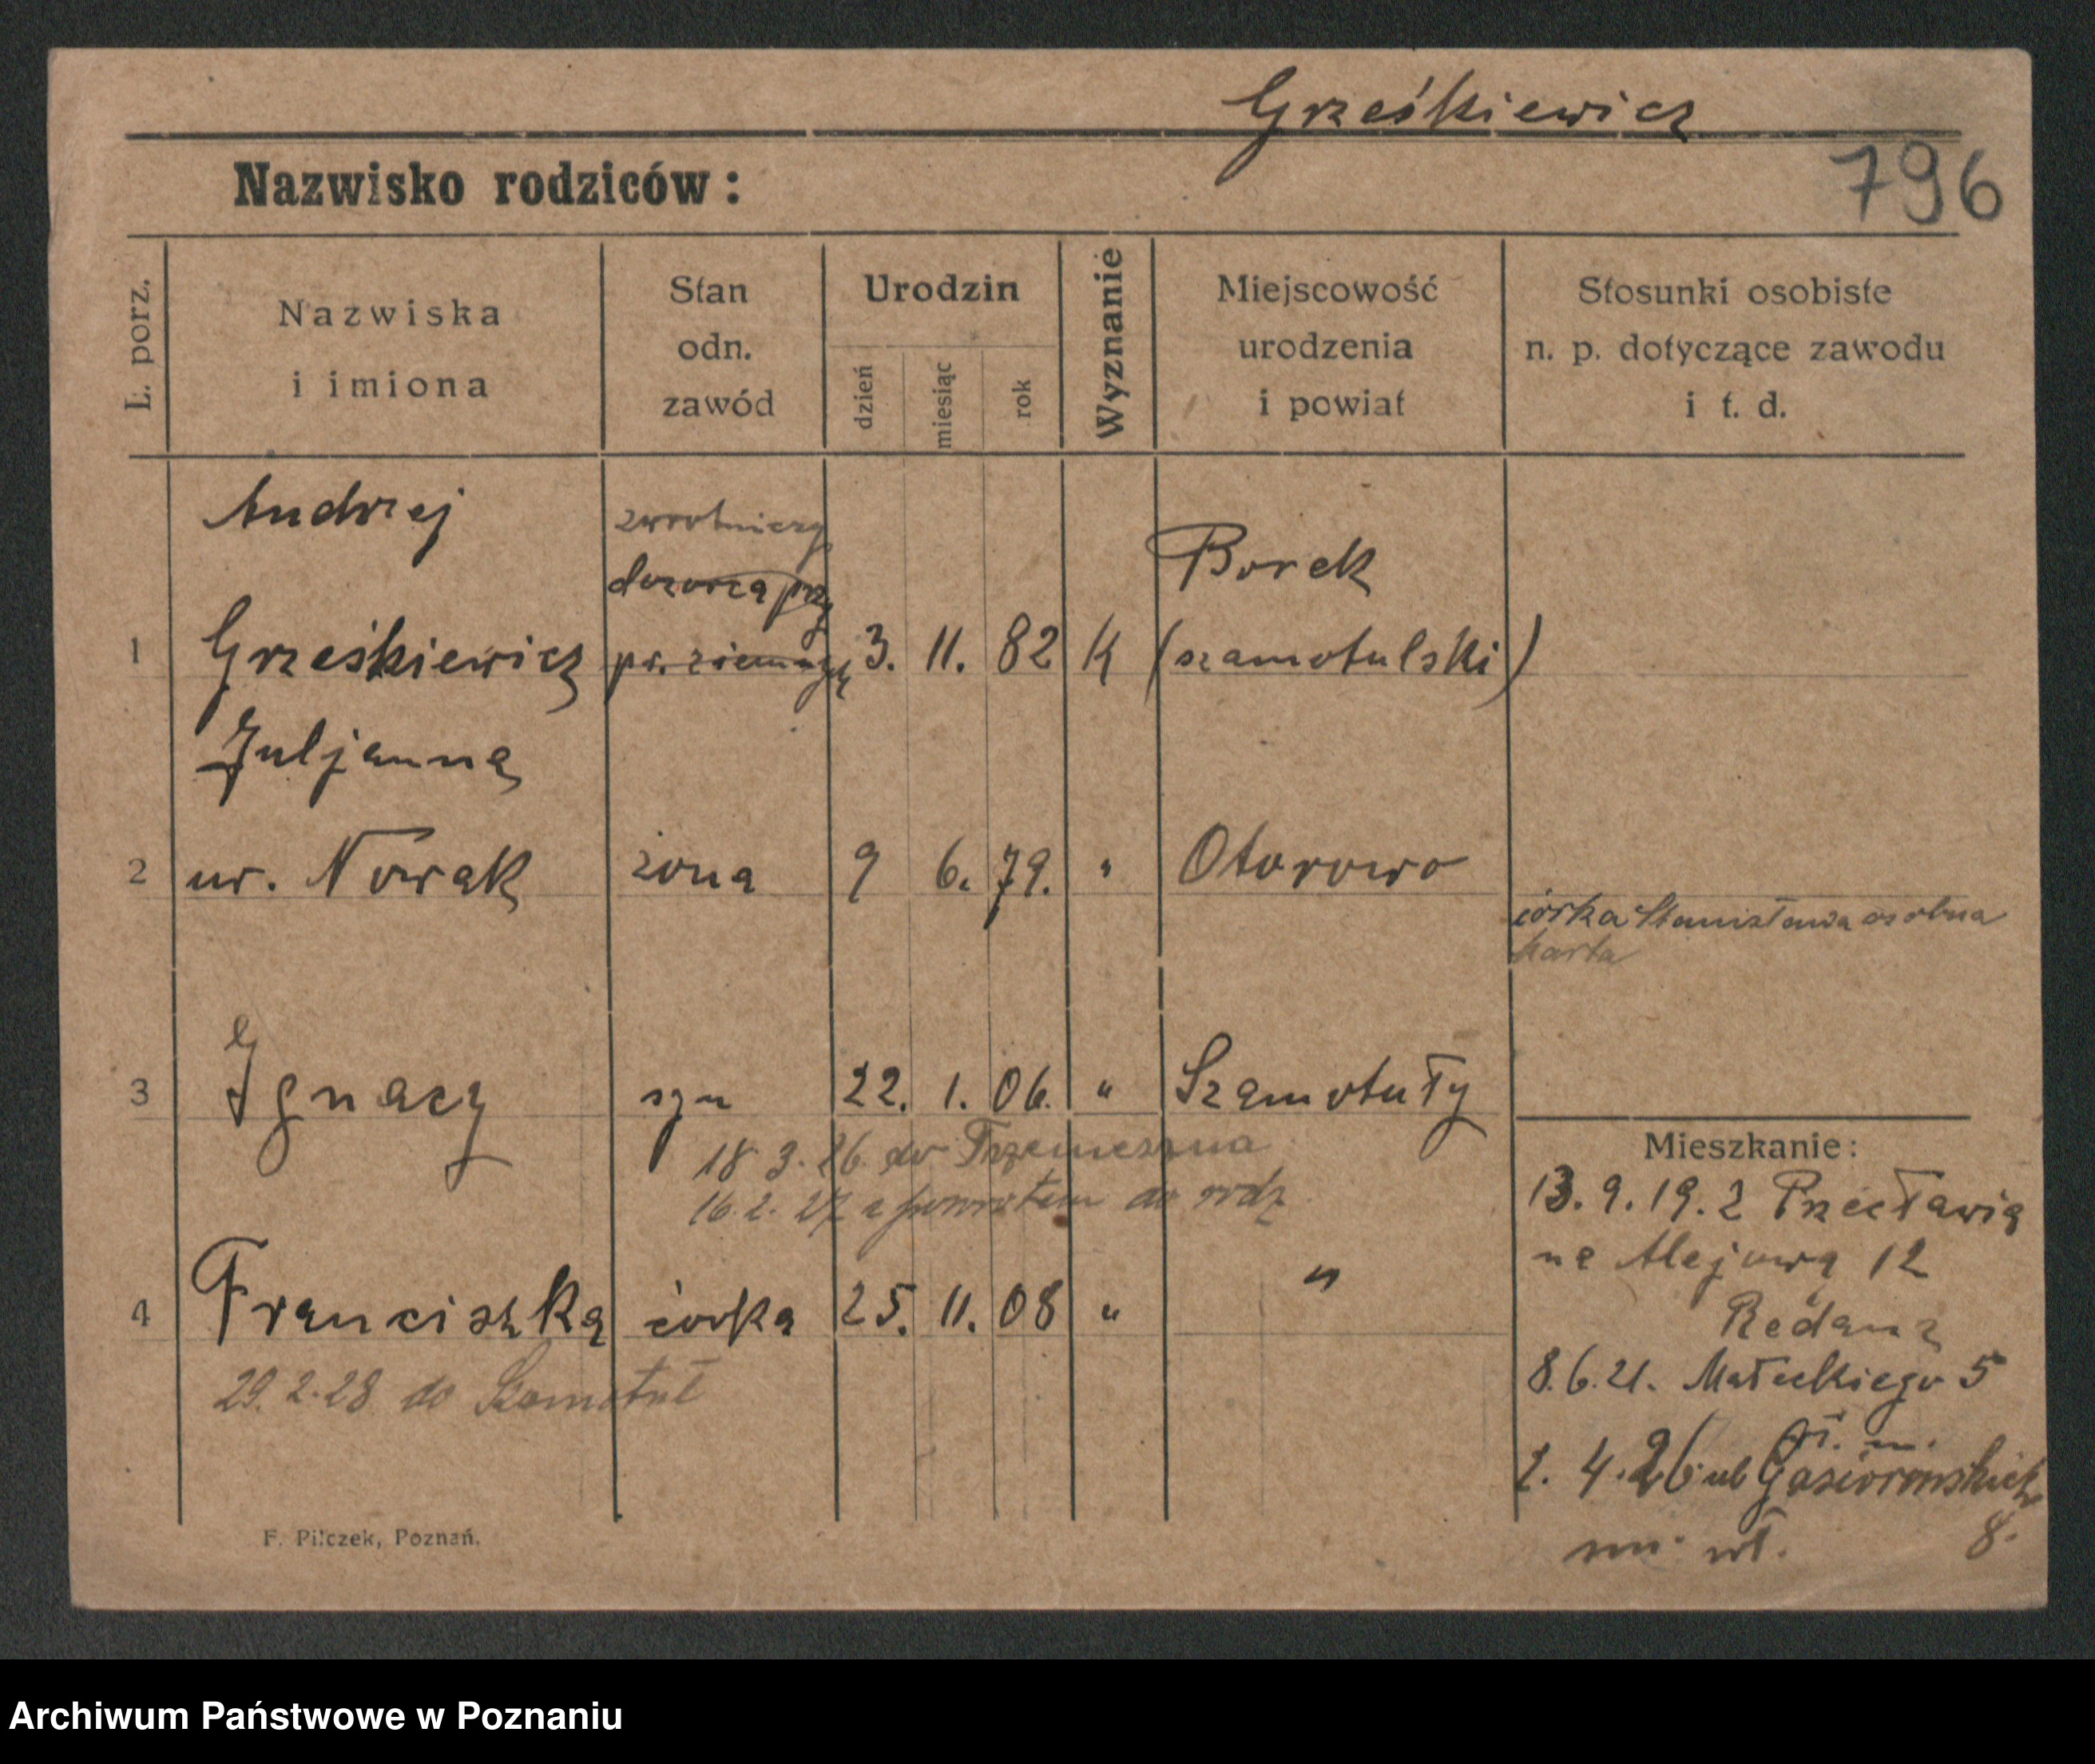 Grześkiewicz
Nazwisko rodziców:
796
L. porz.
Nazwiska
i imiona
Stan
odn.
zawód
Urodzin
dzień
miesiąc
rok
Wyznanie
Miejscowość
urodzenia
i powiat
Stosunki osobiste
n. p. dotyczące zawodu
i t. d.
Andrzej
zwrotniczy
dozorca przy
Borek
1 Grześkiewicz 3. 11. 82 K (szamotulski)
Juljanna
2 ur. Nowak żona 9 6. 79. " Otorowo
córka Stanisława osobna
karta
3 Ignacy syn 22. 1. 06. " Szamotuły
18 3. 26 do Trzemeszna
16. 2. 27 z powrotem do rodz
4 Franciszka córka 25. 11. 08 " "
29. 2. 28 do Szamotuł
Mieszkanie:
13. 9. 19. z Przecławia
na Alejową 12
Redanz
8. 6. 21. Małeckiego 5
1. 4. 26 ul Gąsiorowskich
8.
F. Pilczek, Poznań.
Archiwum Państwowe w Poznaniu